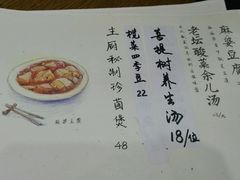 麻婆豆腐
老坛酸菜余儿汤
菩提树养生汤
18/位
榄菜四季豆 22
主厨秘制珍菌煲 48
麻婆豆腐